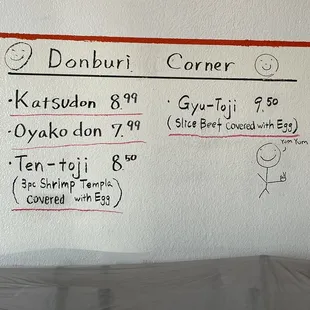 Donburi Corner
· Katsudon 8.99
· Oyakodon 7.99
· Ten-toji 8.50
(3pc Shrimp Templa
covered with Egg)
· Gyu-Toji 9.50
(Slice Beef covered with Egg)
Yum Yum